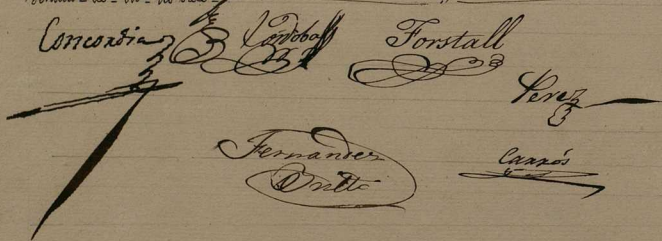 Concordia Cordoba Forstall
Perez
Fernandez Carrós